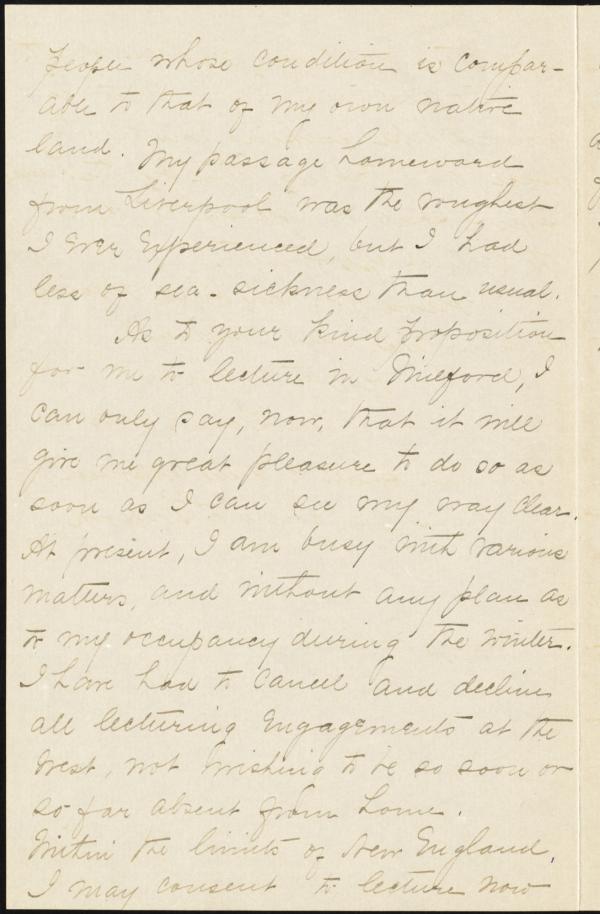 people whose condition is compar-
able to that of my own native
land. My passage homeward
from Liverpool was the roughest
I ever experienced, but I had
less of sea-sickness than usual.
As to your kind proposition
for me to lecture in Milford, I
can only say, now, that it will
give me great pleasure to do so as
soon as I can see my way clear.
At present, I am busy with various
matters, and without any plan as
to my occupancy during the winter.
I have had to cancel and decline
all lecturing engagements at the
West, not wishing to be so soon or
so far absent from home.
Within the limits of New England,
I may consent to lecture now